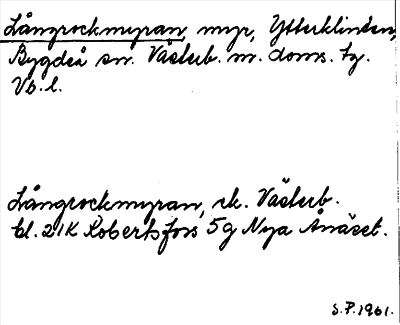 Långrockmyran, myr, Ytterklinten,
Bygdeå sn. Västerb. m. doms. tg.
Vb. l.
Långrockmyran, ek. Västerb.
bl. 21K Robertsfors 5g Nya Ånäset.
S.P. 1961.